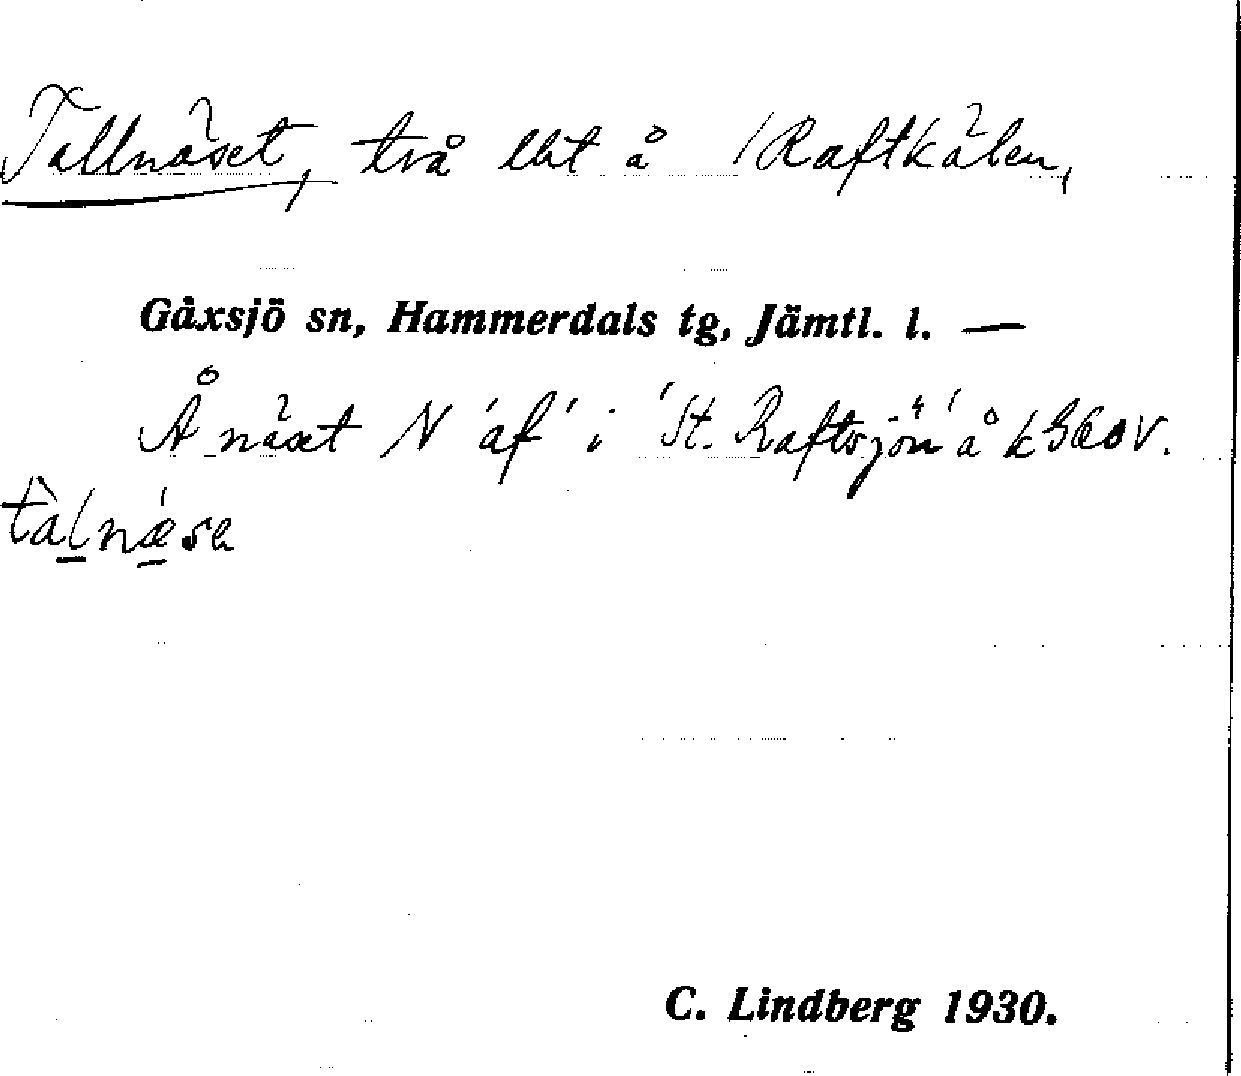 Tallnäset, två lht å Raftkälen,
Gåxsjö sn, Hammerdals tg, Jämtl. l. —
Å näset N áf i St. Raftsjön å k 36 o V.
tàlnæse
C. Lindberg 1930.